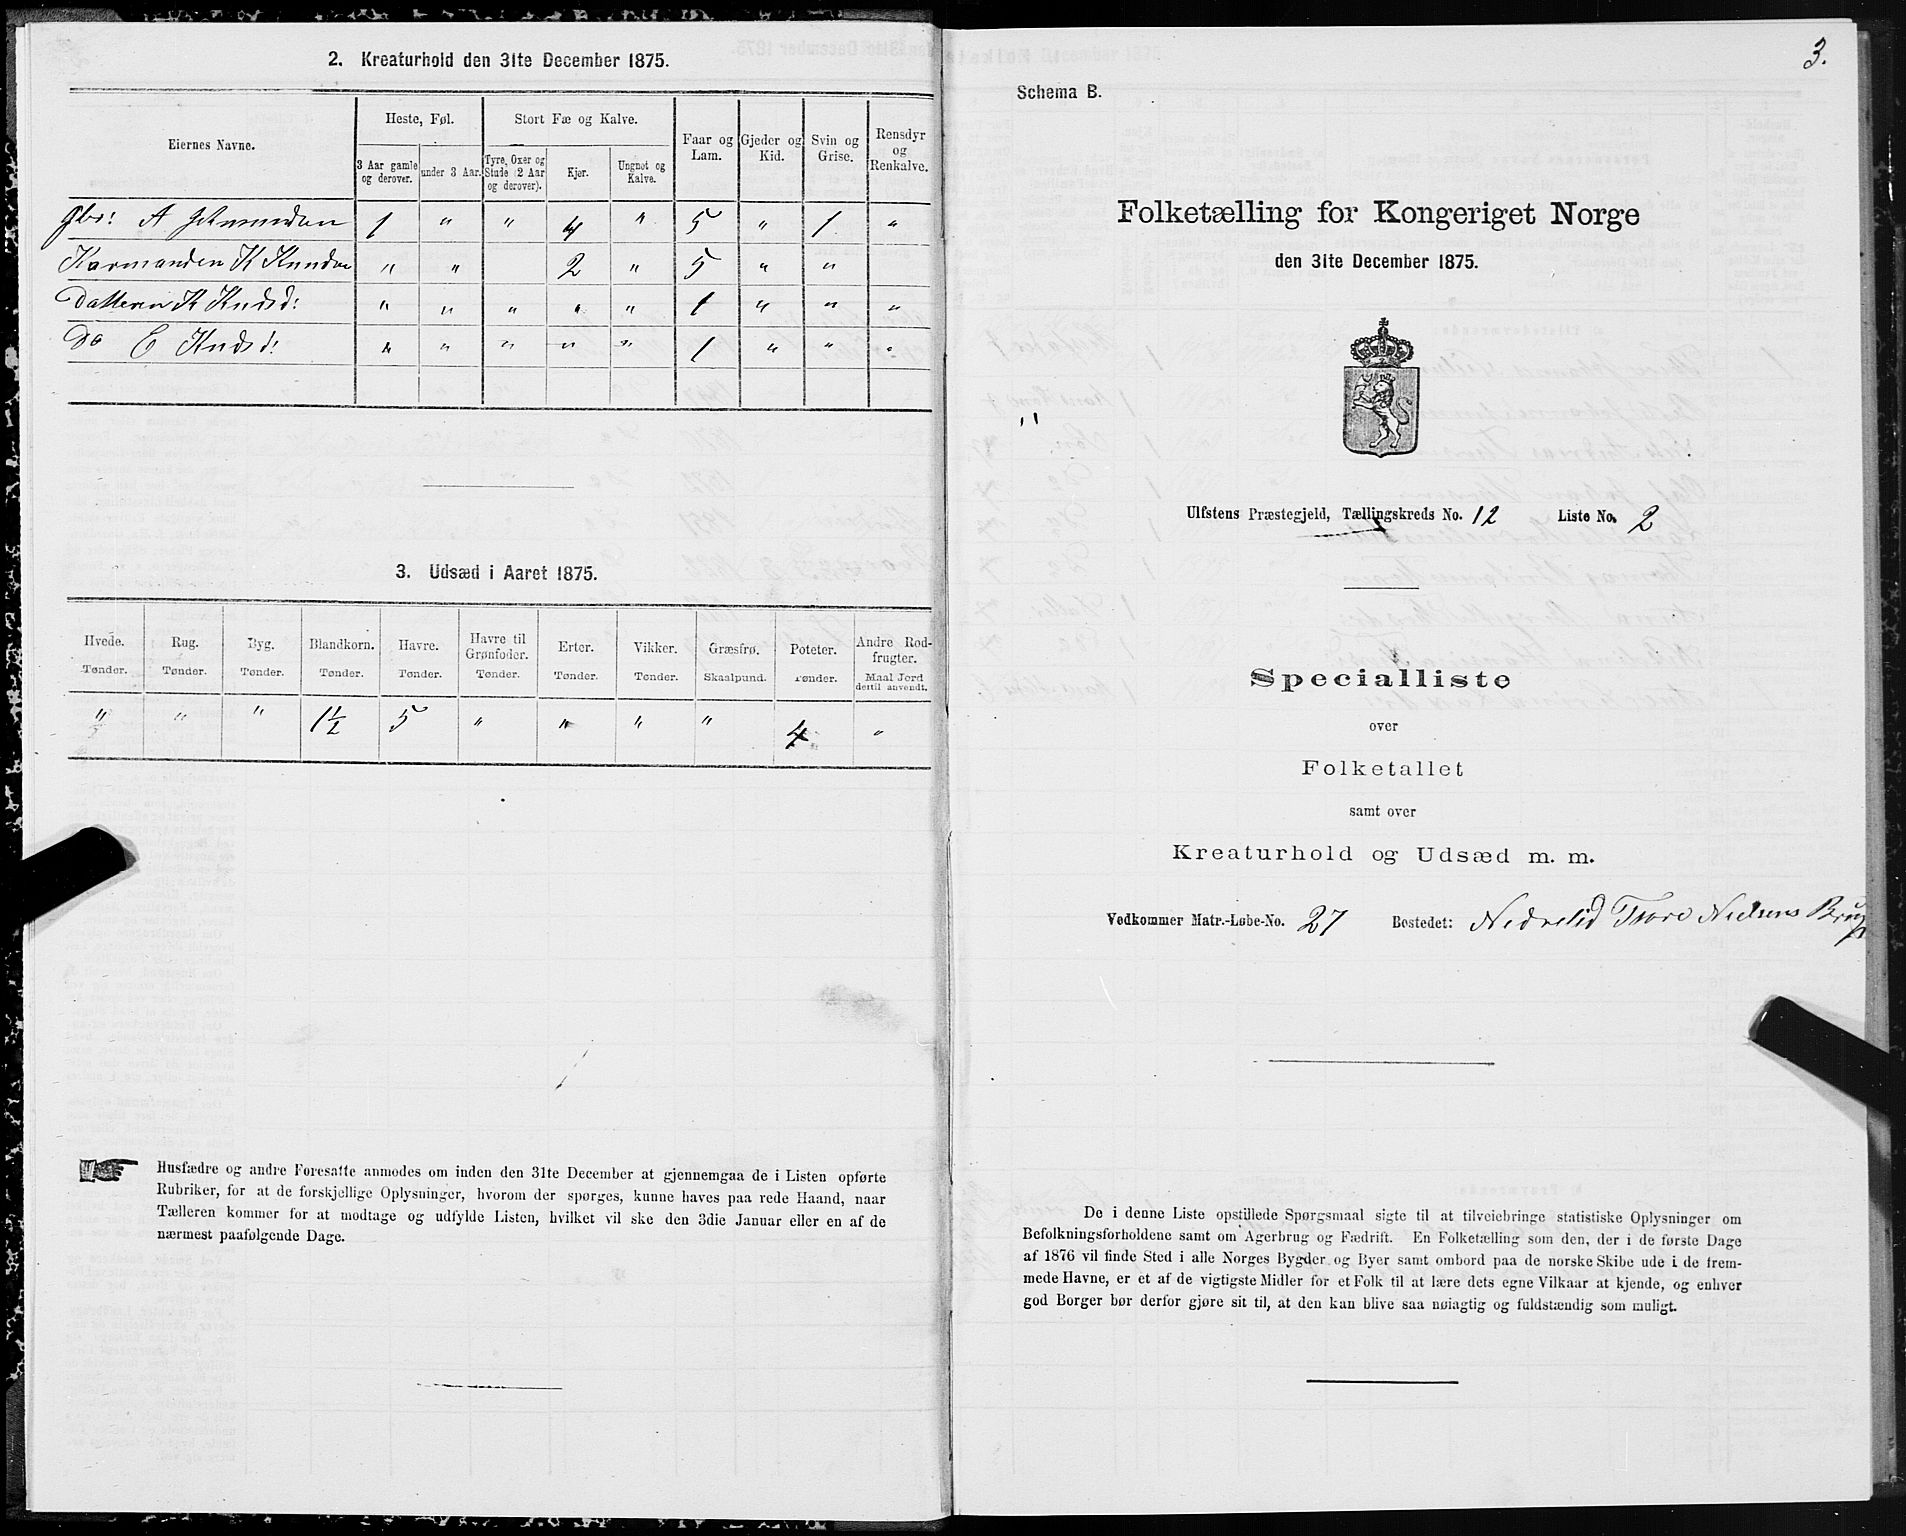 2. Kreaturhold den 31te December 1875.
Eiernes Navne.
Heste, Føl.
Stort Fæ og Kalve.
Faar og Lam.
Gjeder og Kid.
Svin og Grise.
Rensdyr og Renkalve.
3 Aar gamle og derover.
under 3 Aar.
Tyre, Oxer og Stude (2 Aar og derover).
Kjør.
Ungnøt og Kalve.
Gbr: A 1 " " 4 " 5 " 1 "
K Knudsen " " 2 " 5 " "
Datteren K Kndsd: " " " " " 1 " " "
Do C Kndsd: " " " " " 1 " " "
3. Udsæd i Aaret 1875.
Hvede. Rug. Byg. Blandkorn. Havre. Havre til Grønfoder. Erter. Vikker. Græsfrø. Poteter. Andre Rodfrugter.
Tønder. Tønder. Tønder. Tønder. Tønder. Tønder. Tønder. Tønder. Skaalpund. Tønder. Maal Jord dertil anvendt.
" " " 1½ 5 " " " " 4 "
Husfædre og andre Foresatte anmodes om inden den 31te December at gjennemgaa de i Listen opførte
Rubriker, for at de forskjellige Oplysninger, hvorom der spørges, kunne haves paa rede Haand, naar
Tælleren kommer for at modtage og udfylde Listen, hvilket vil ske den 3die Januar eller en af de
nærmest paafølgende Dage.
3.
Schema B.
Folketælling for Kongeriget Norge
den 31te December 1875.
Ulfstens Præstegjeld, Tællingskreds No. 12 Liste No. 2
Specialliste
over
Folketallet
samt over
Kreaturhold og Udsæd m. m.
Vedkommer Matr.-Løbe-No. 27 Bostedet: Nedrelid Thore Nielsens Brug
De i denne Liste opstillede Spørgsmaal sigte til at tilveiebringe statistiske Oplysninger om
Befolkningsforholdene samt om Agerbrug og Fædrift. En Folketælling som den, der i de første Dage
af 1876 vil finde Sted i alle Norges Bygder og Byer samt ombord paa de norske Skibe ude i de frem-
mede Havne, er et af de vigtigste Midler for et Folk til at lære dets egne Vilkaar at kjende, og enhver
god Borger bør derfor gjøre sit til, at den kan blive saa nøiagtig og fuldstændig som muligt.